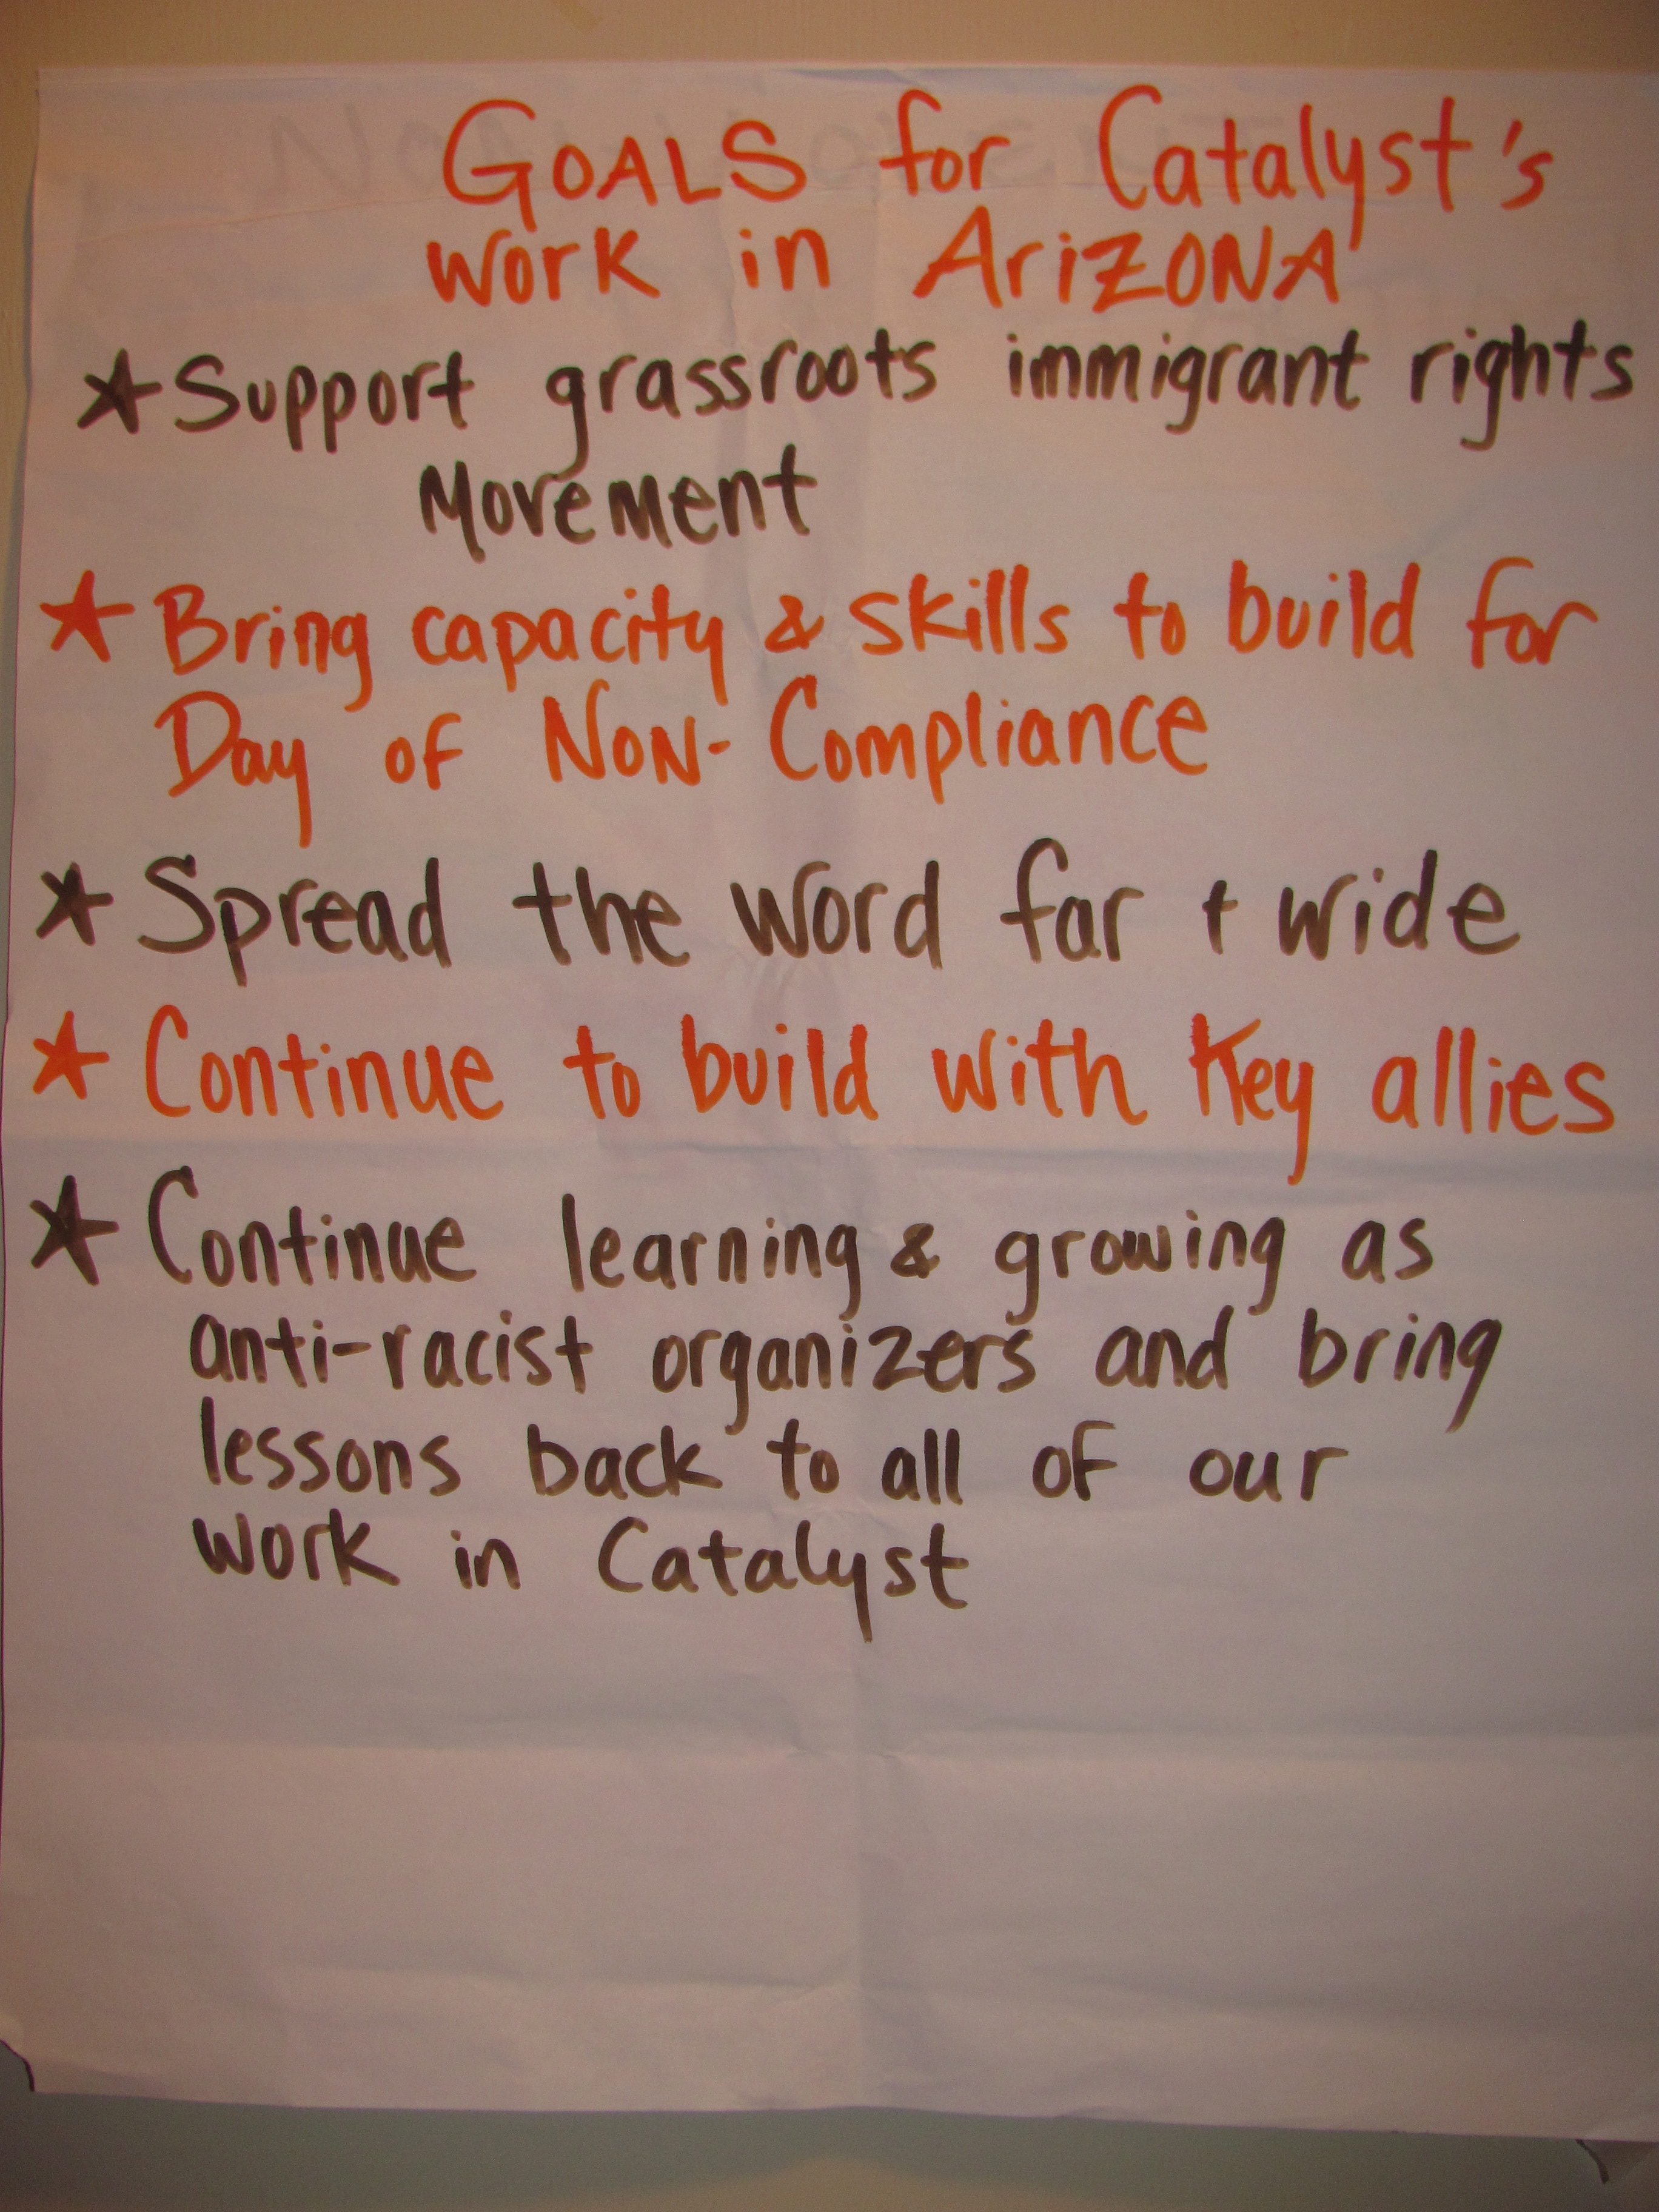 GOALS for Catalyst's
work in ARiZONA
★ Support grassroots immigrant rights
Movement
★ Bring capacity & skills to build for
Day of NoN-Compliance
★ Spread the word far + wide
★ Continue to build with Key allies
★ Continue learning & growing as
anti-racist organizers and bring
lessons back to all of our
work in Catalyst